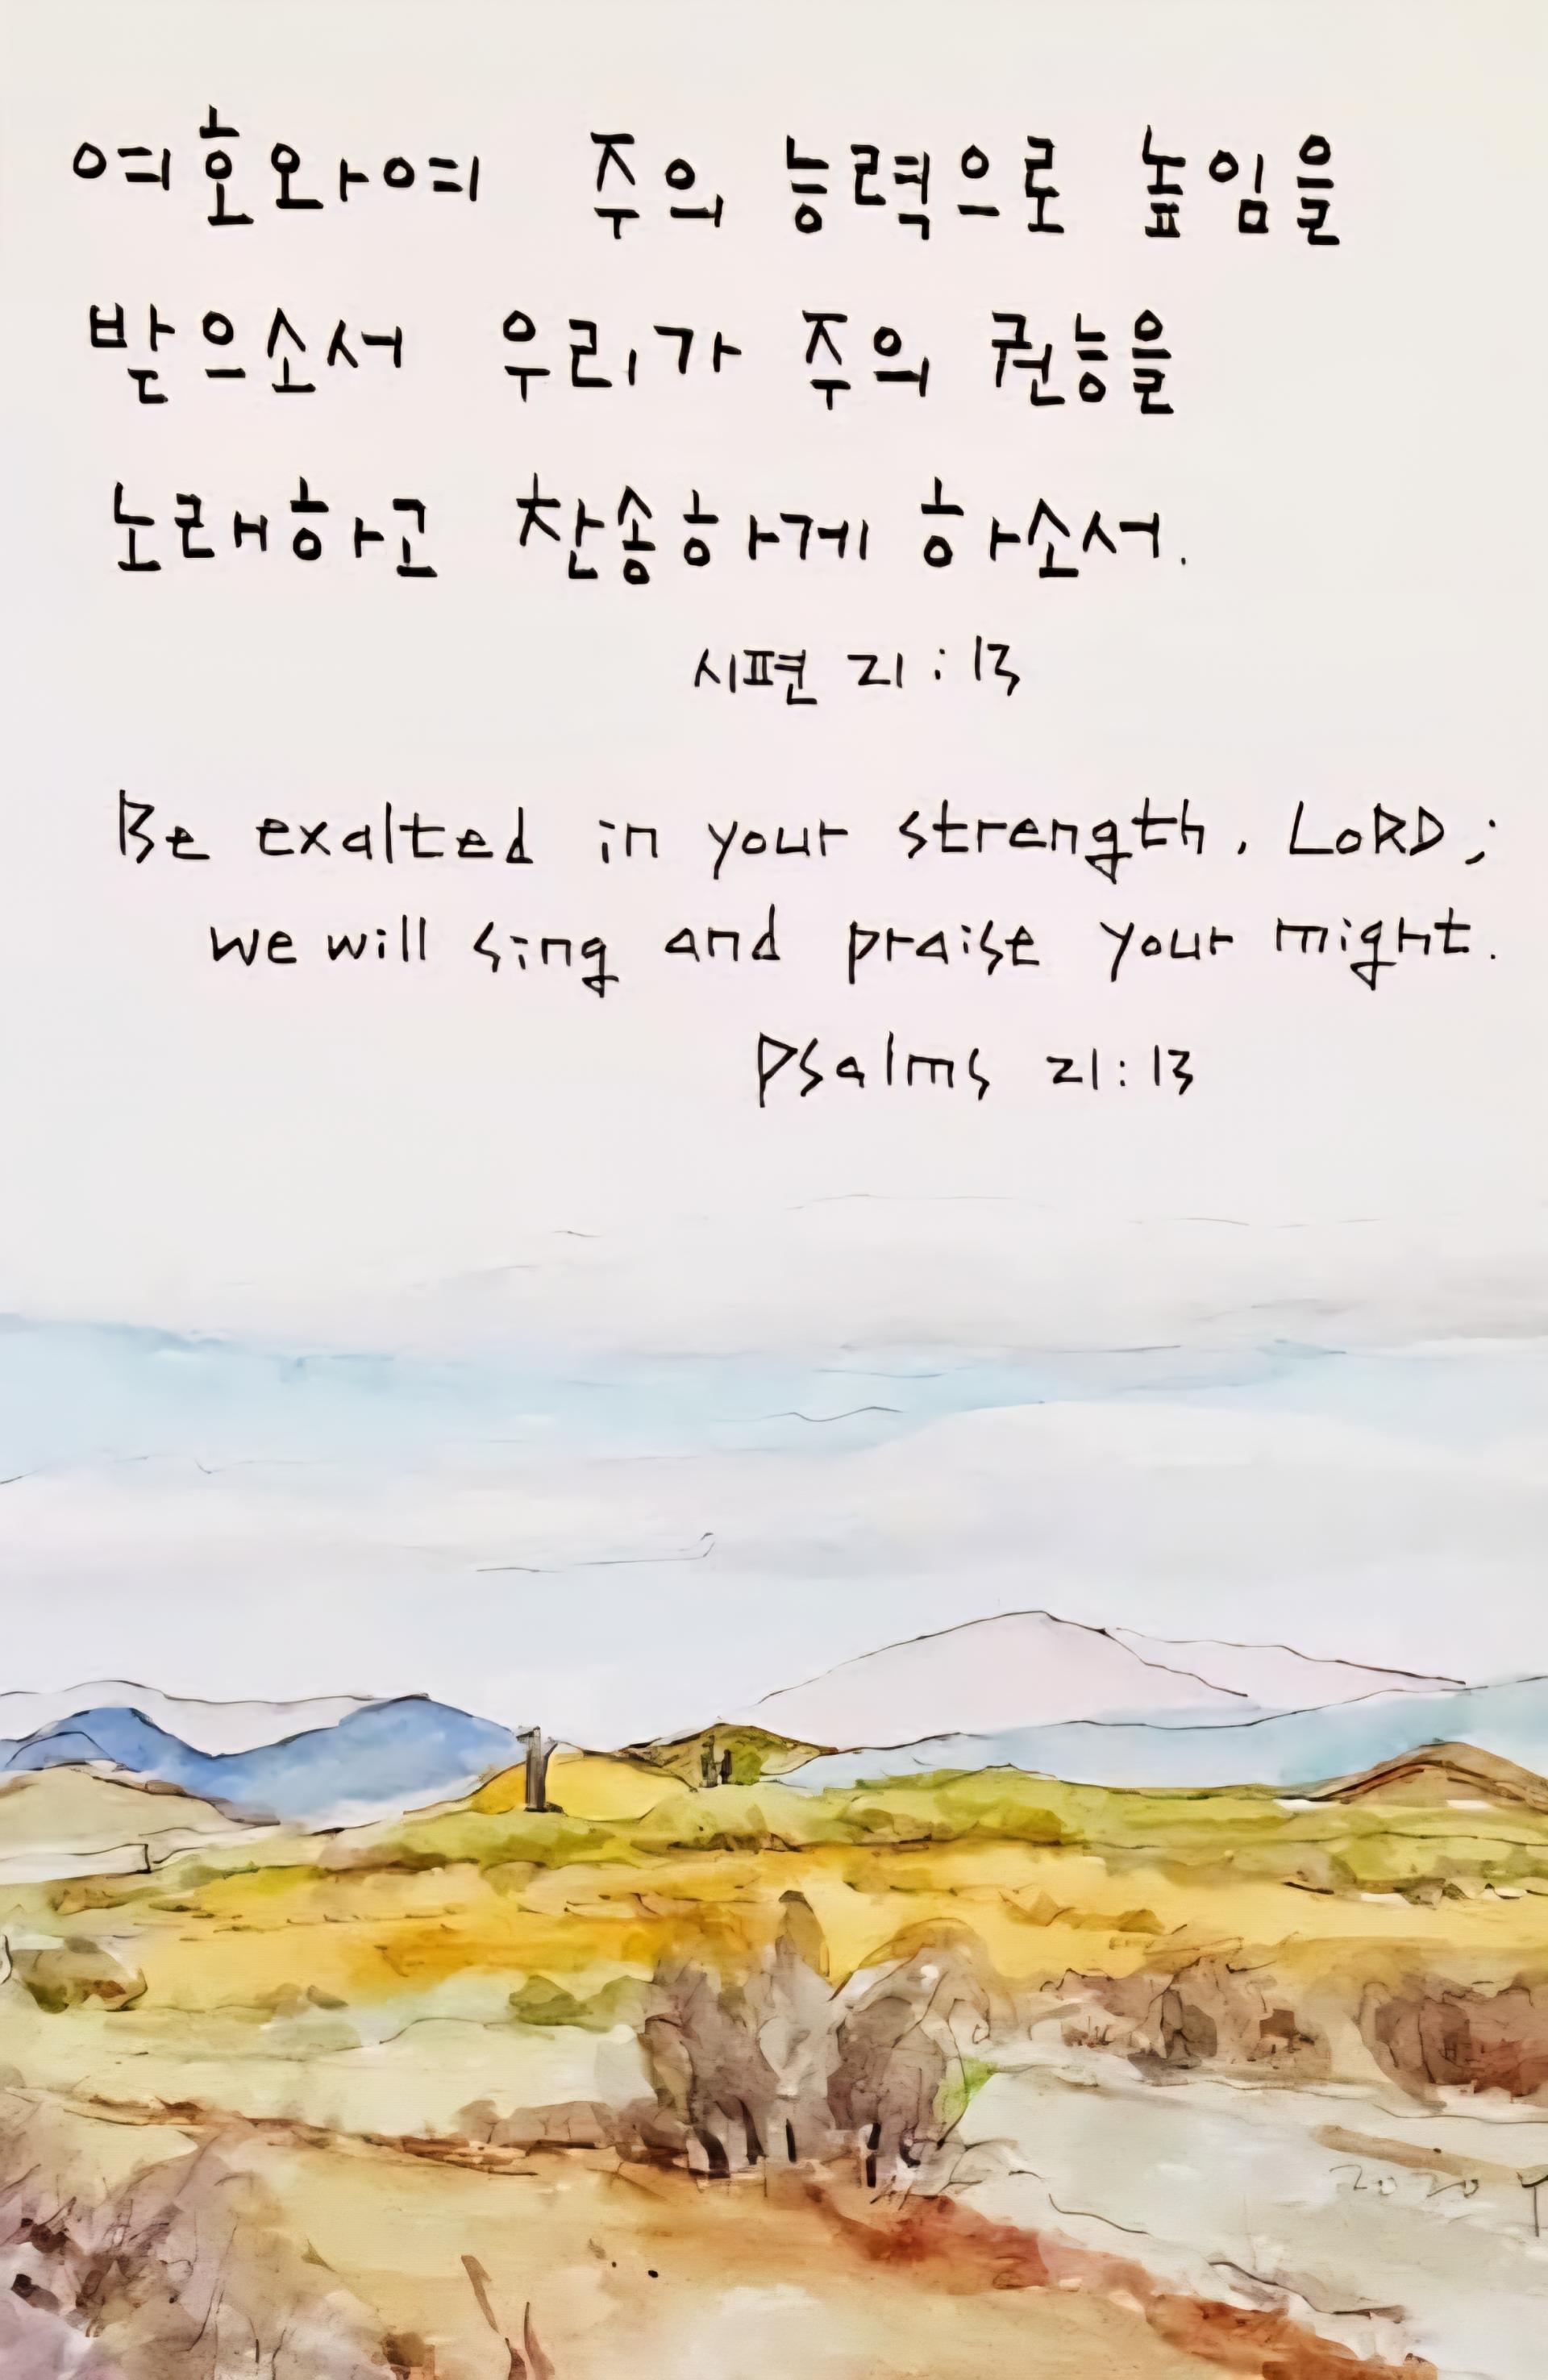 여호와여 주의 능력으로 높임을
받으소서 우리가 주의 권능을
노래하고 찬송하게 하소서.
시편 21:13
Be exalted in your strength, LoRD;
we will sing and praise your might.
Psalms 21:13
2020